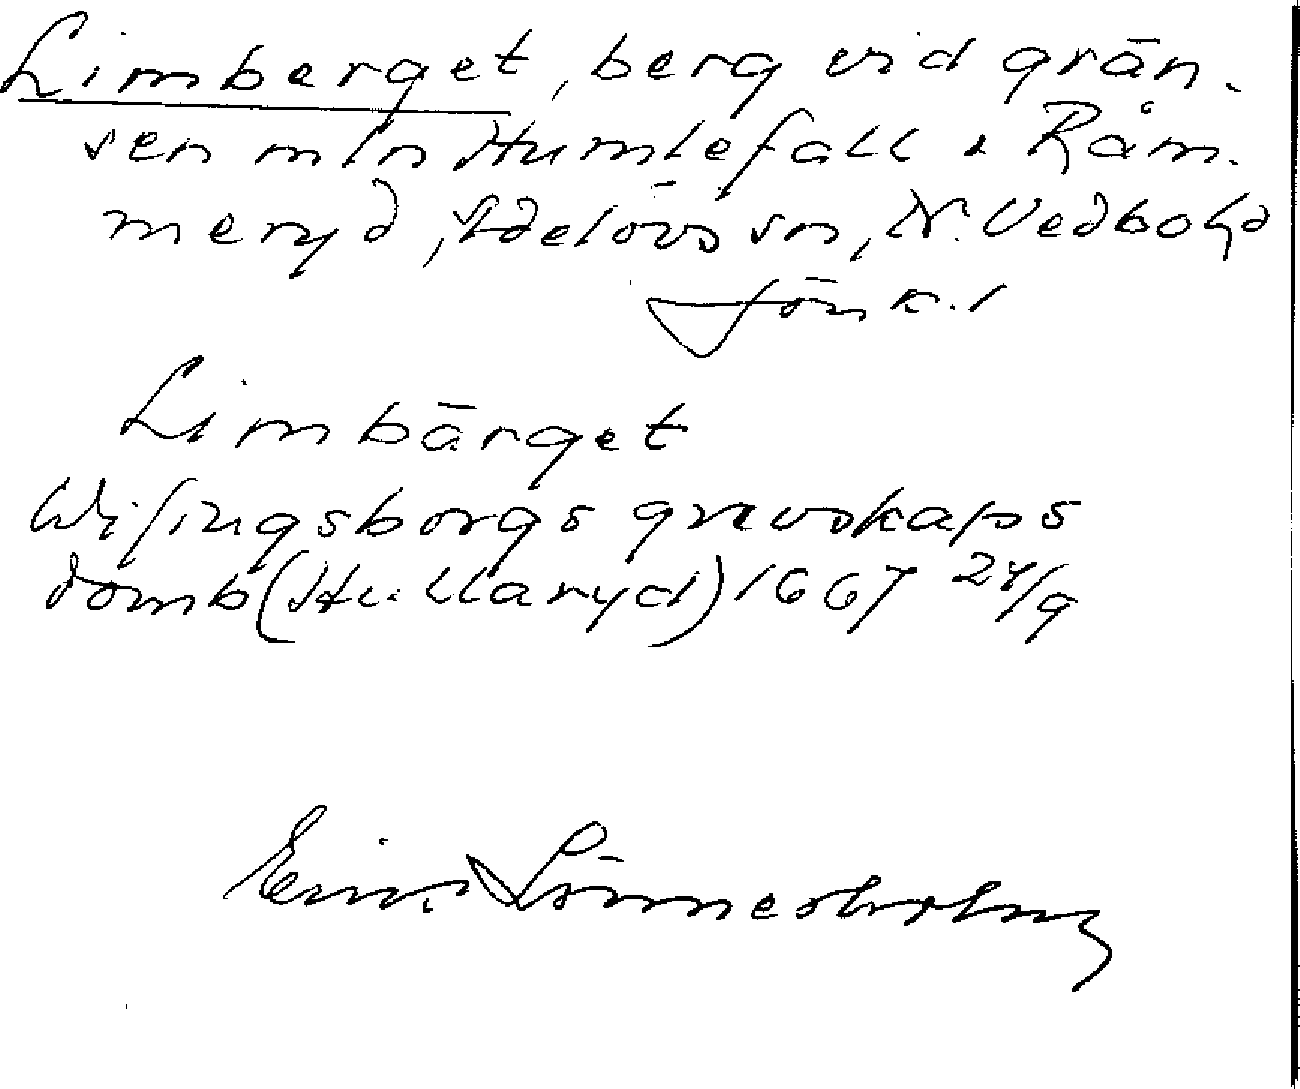 Limberget, berg vid grän-
sen mln Humlefall & Råm-
meryd, Adelövs sn, N. Vedbohd
Jönk. l
Limbärget
Wisingsborgs grevskaps
domb (Hullaryd) 1667 24/9
Eric Lönnerholm